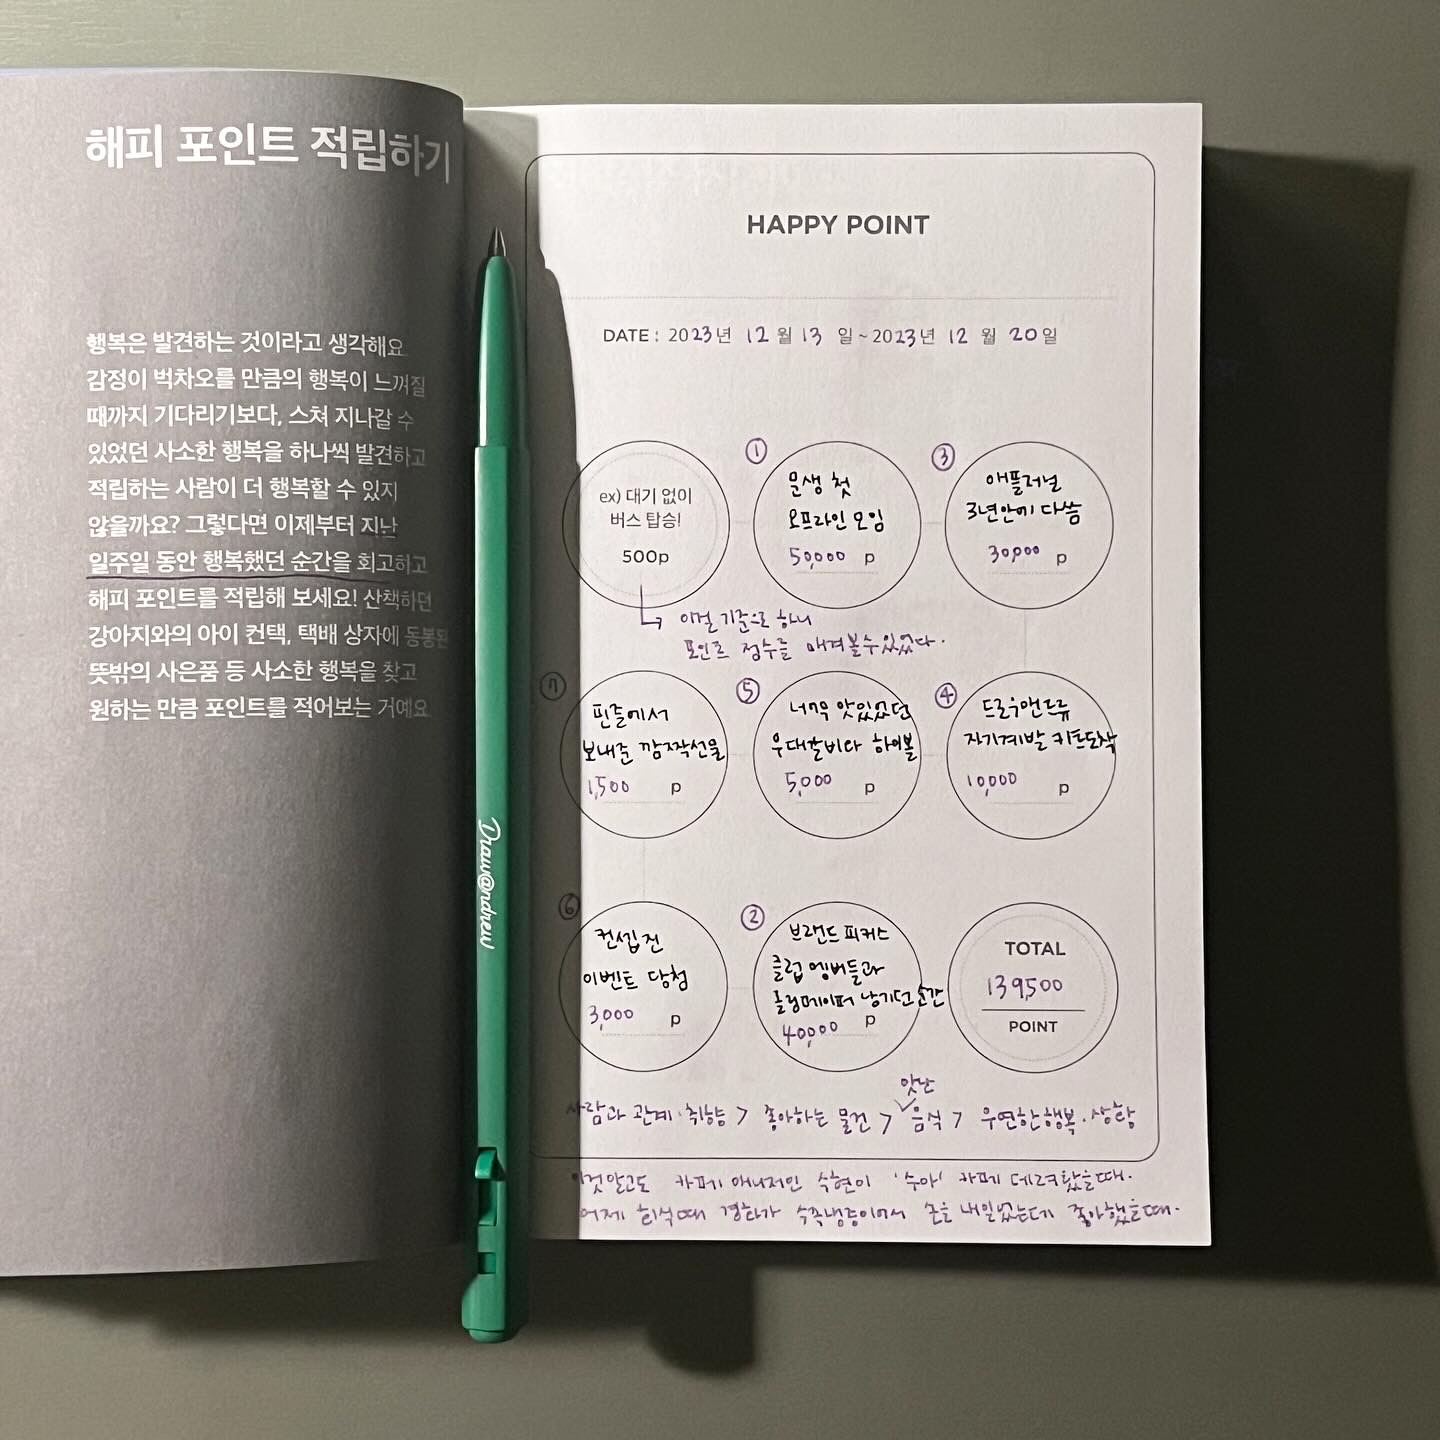 해피 포인트 적립하기
행복은 발견하는 것이라고 생각해요
감정이 벅차오를 만큼의 행복이 느껴질
때까지 기다리기보다, 스쳐 지나갈 수
있었던 사소한 행복을 하나씩 발견하고
적립하는 사람이 더 행복할 수 있지
않을까요? 그렇다면 이제부터 지난
일주일 동안 행복했던 순간을 회고하고
해피 포인트를 적립해 보세요! 산책하던
강아지와의 아이 컨택, 택배 상자에 동봉된
뜻밖의 사은품 등 사소한 행복을 찾고
원하는 만큼 포인트를 적어보는 거예요
Draw@ndrew
HAPPY POINT
DATE : 2023년 12월 13일 ~ 2023년 12월 20일
ex) 대기 없이
버스 탑승!
500p
①
문생 첫
오프라인 모임
50,000 p
③
애플러널
3년안에 다씀
30,000 p
이걸 기준으로 하니
포인트 점수를 매겨볼수있었다.
⑦
핀즐에서
보내준 깜짝선물
1,500 p
⑤
너무 맛있었던
우대갈비다 하이볼
5,000 p
④
드로우앤드류
자기계발 키트도착
10,000 p
⑥
컨셉진
이벤트 당첨
3,000 p
②
브랜드 피커스
클럽 멤버들과
롤링페이퍼 남기던 순간
40,000 p
TOTAL
139,500
POINT
사람과 관계·취향 > 좋아하는 물건 > 맛난 음식 > 우연한행복·상황
이것말고도 카페 매니저인 숙현이 '수아' 카페 데려왔을때.
어제 회식때 경화가 수족냉증이어서 손을 내밀었는데 좋아했을때.